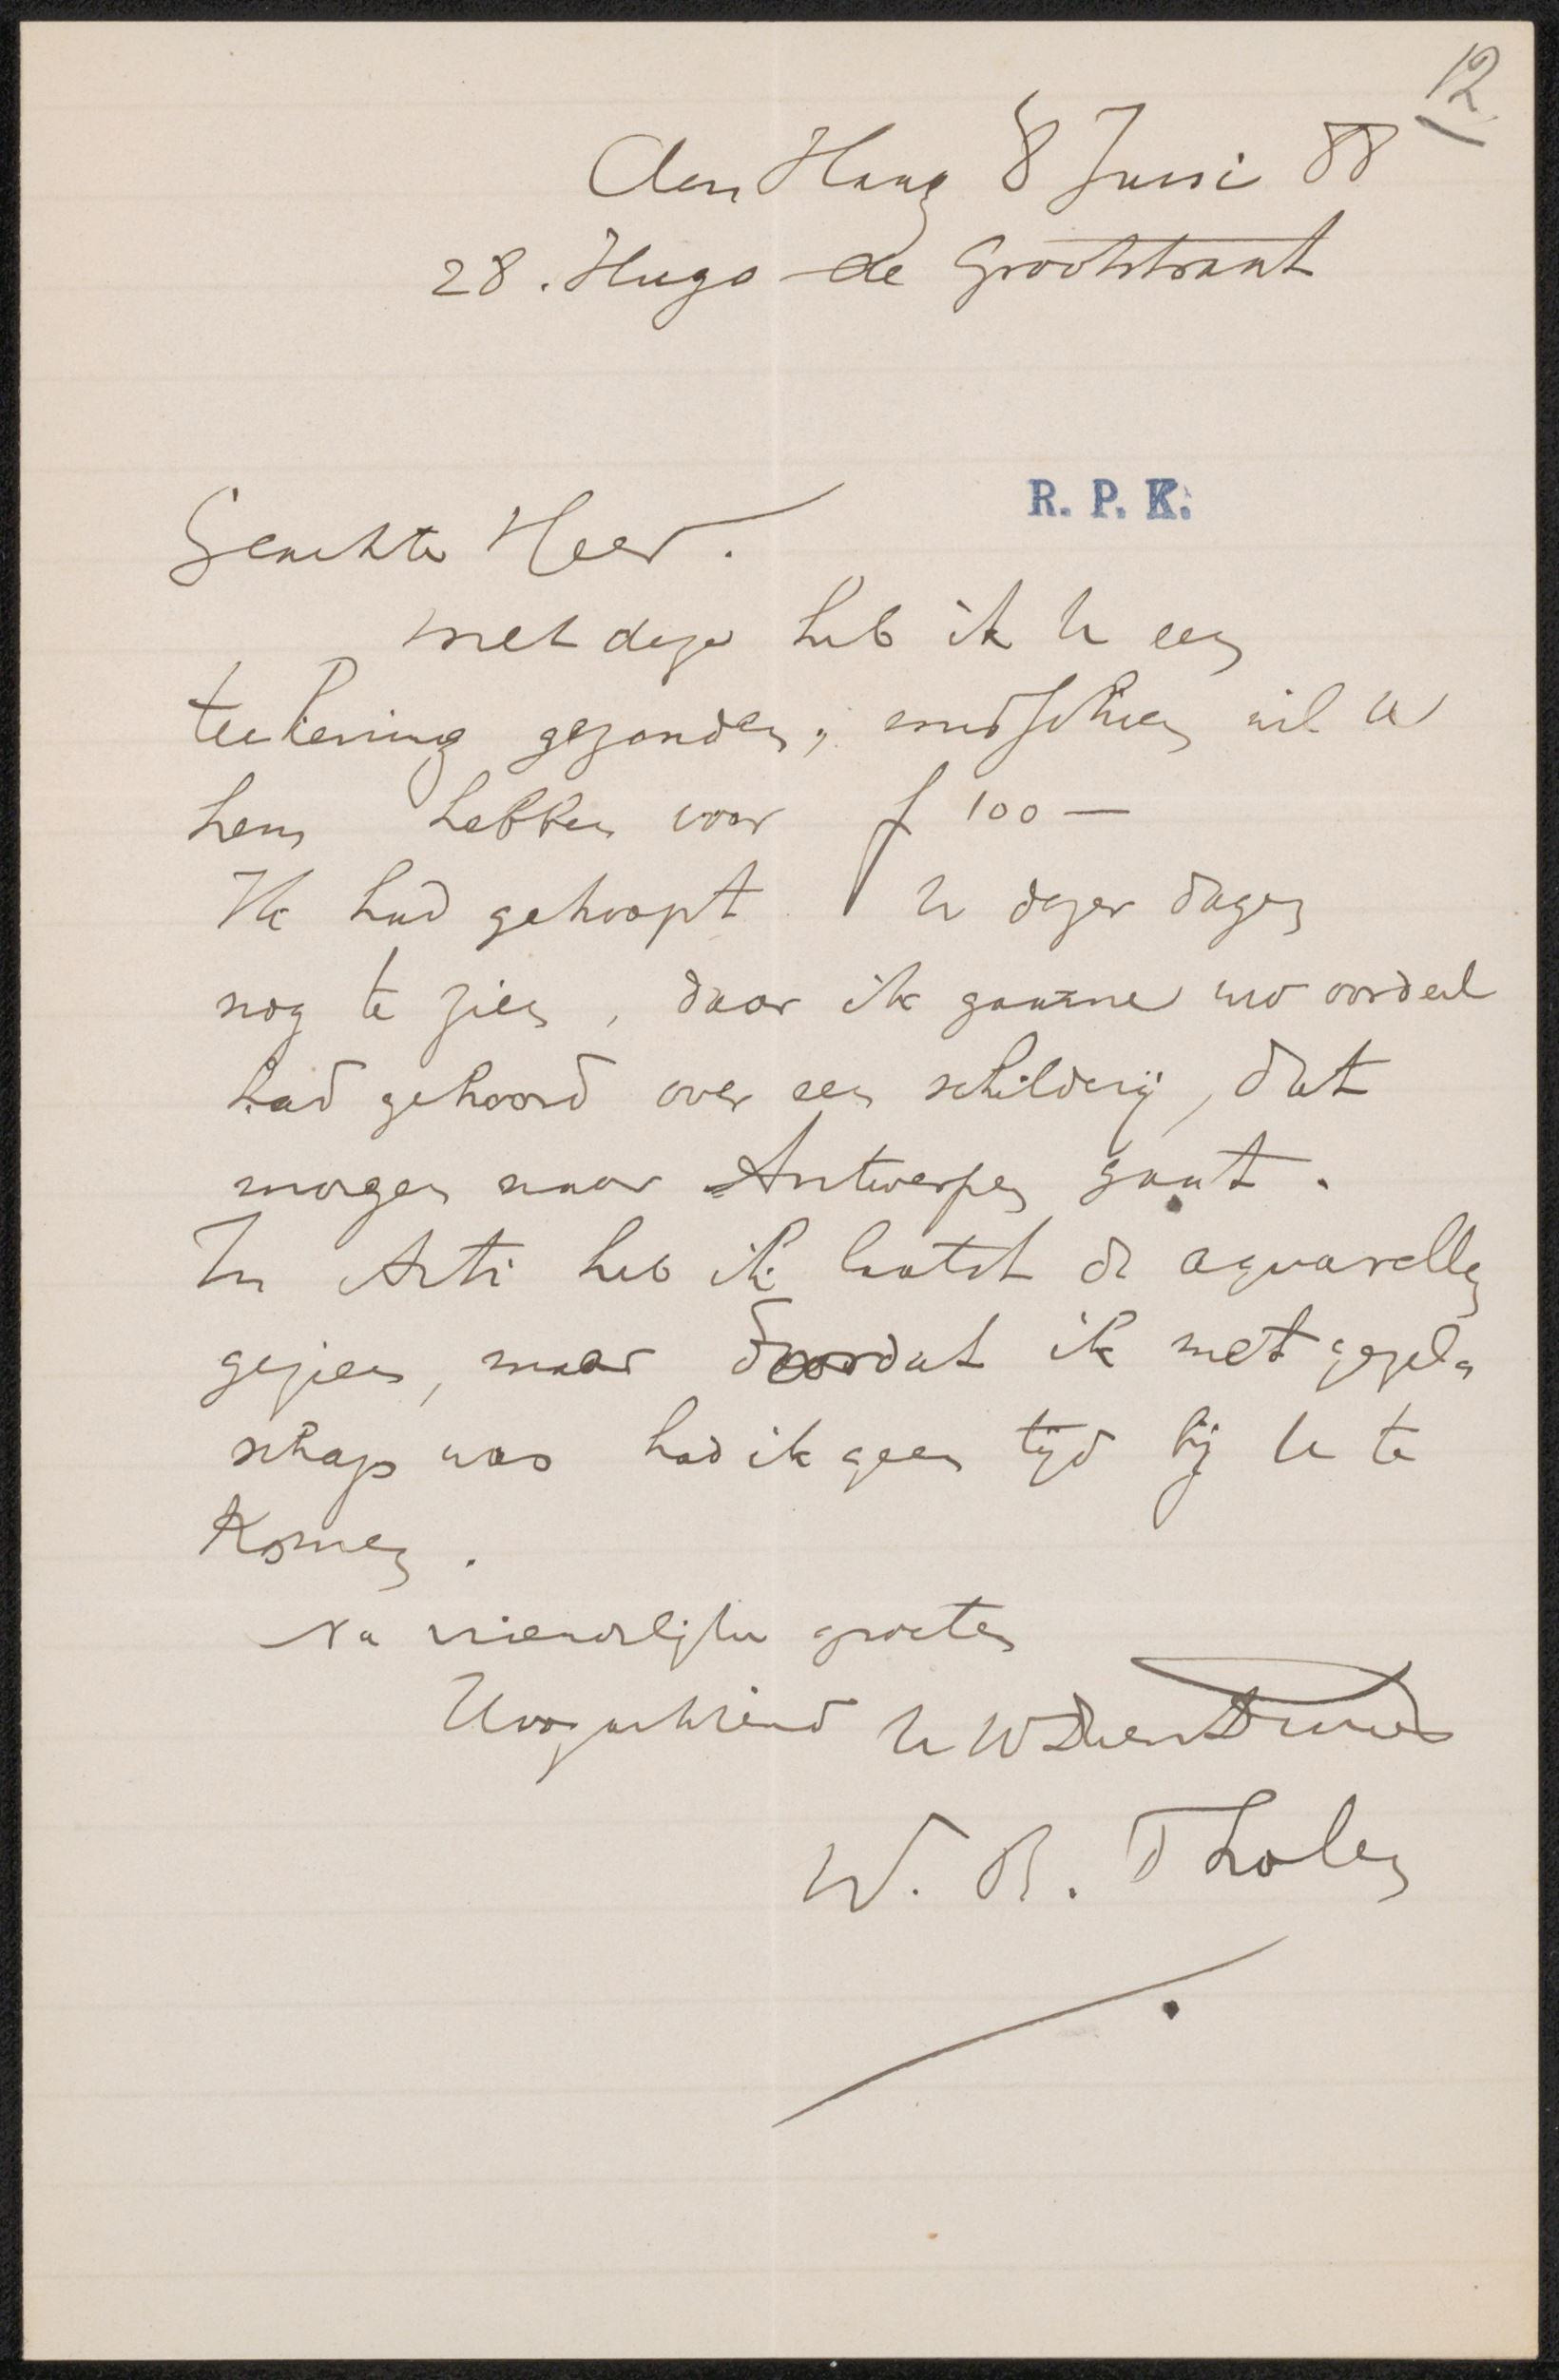 12
den Haag 8 Juni 88
28. Hugo de Grootstraat
R. P. K.
Geachte Heer.
met deze heb ik U een
teekening gezonden, misschien wil U
hem hebben voor f 100 —
Ik had gehoopt U dezer dagen
nog te zien, daar ik gaarne uw oordeel
had gehoord over een schilderij, dat
morgen naar Antwerpen gaat.
In Arti heb ik laatst de aquarellen
gezien, maar doordat ik met gezel-
schap was had ik geen tijd bij U te
Komen.
Na vriendelijke groeten
Hoogachtend U W Dienstw
W. B. Tholen